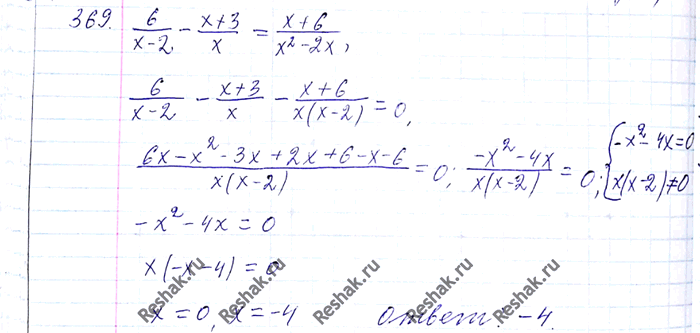 369. 6/(x-2) - (x+3)/x = (x+6)/(x²-2x),
6/(x-2) - (x+3)/x - (x+6)/(x(x-2)) = 0,
(6x-x²-3x+2x+6-x-6)/(x(x-2)) = 0; (-x²-4x)/(x(x-2)) = 0; { -x²-4x=0 x(x-2)≠0
-x²-4x=0
x(-x-4)=0
x=0, x=-4 Ответ: -4.
Reshak.ru Reshak.ru Reshak.ru Reshak.ru